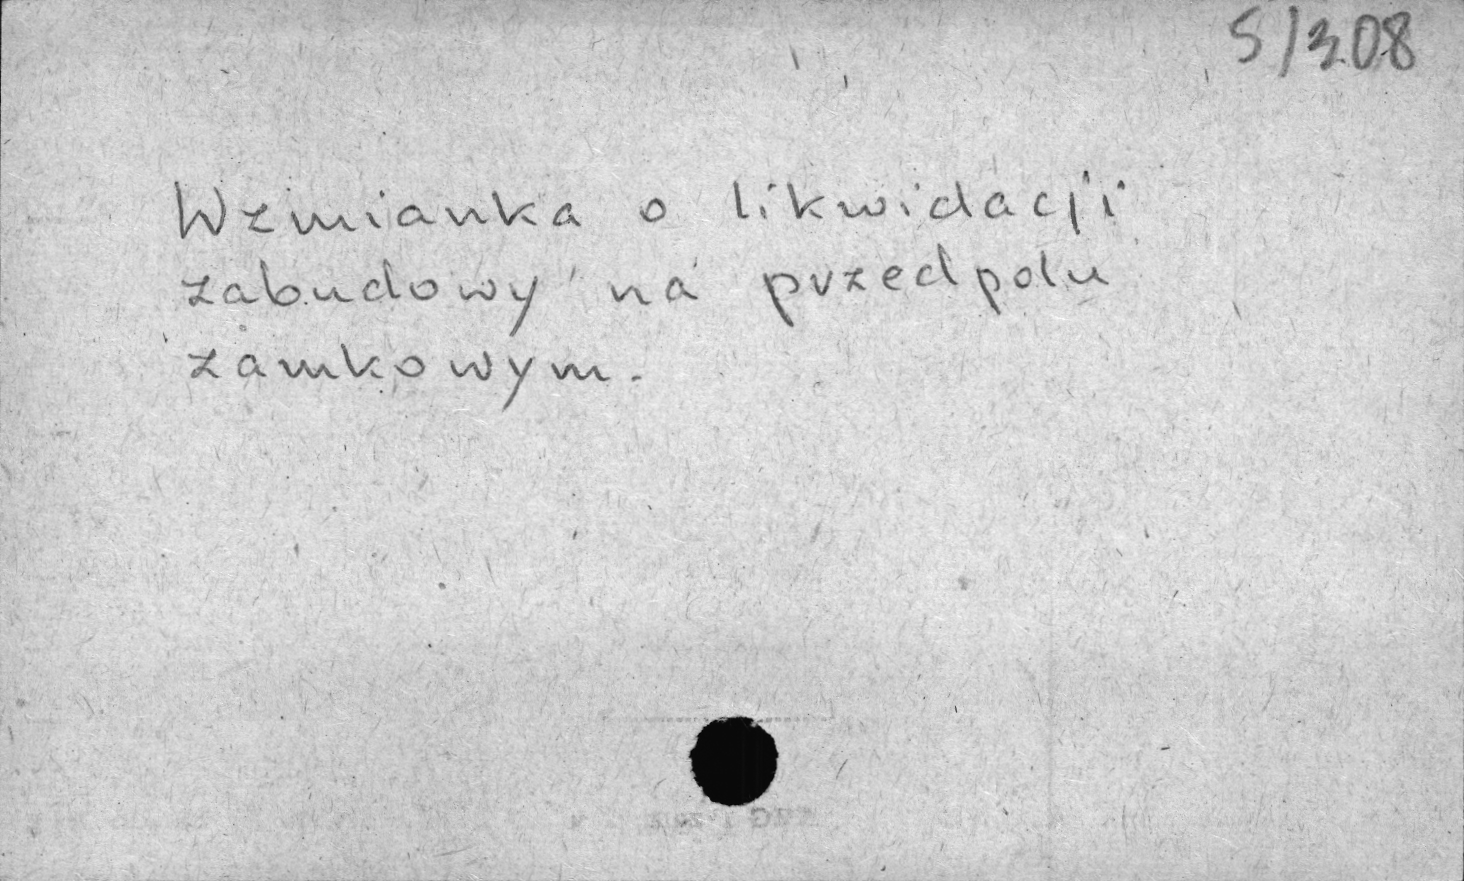 S/308
Wzmianka o likwidacji
zabudowy na przedpolu
zamkowym.